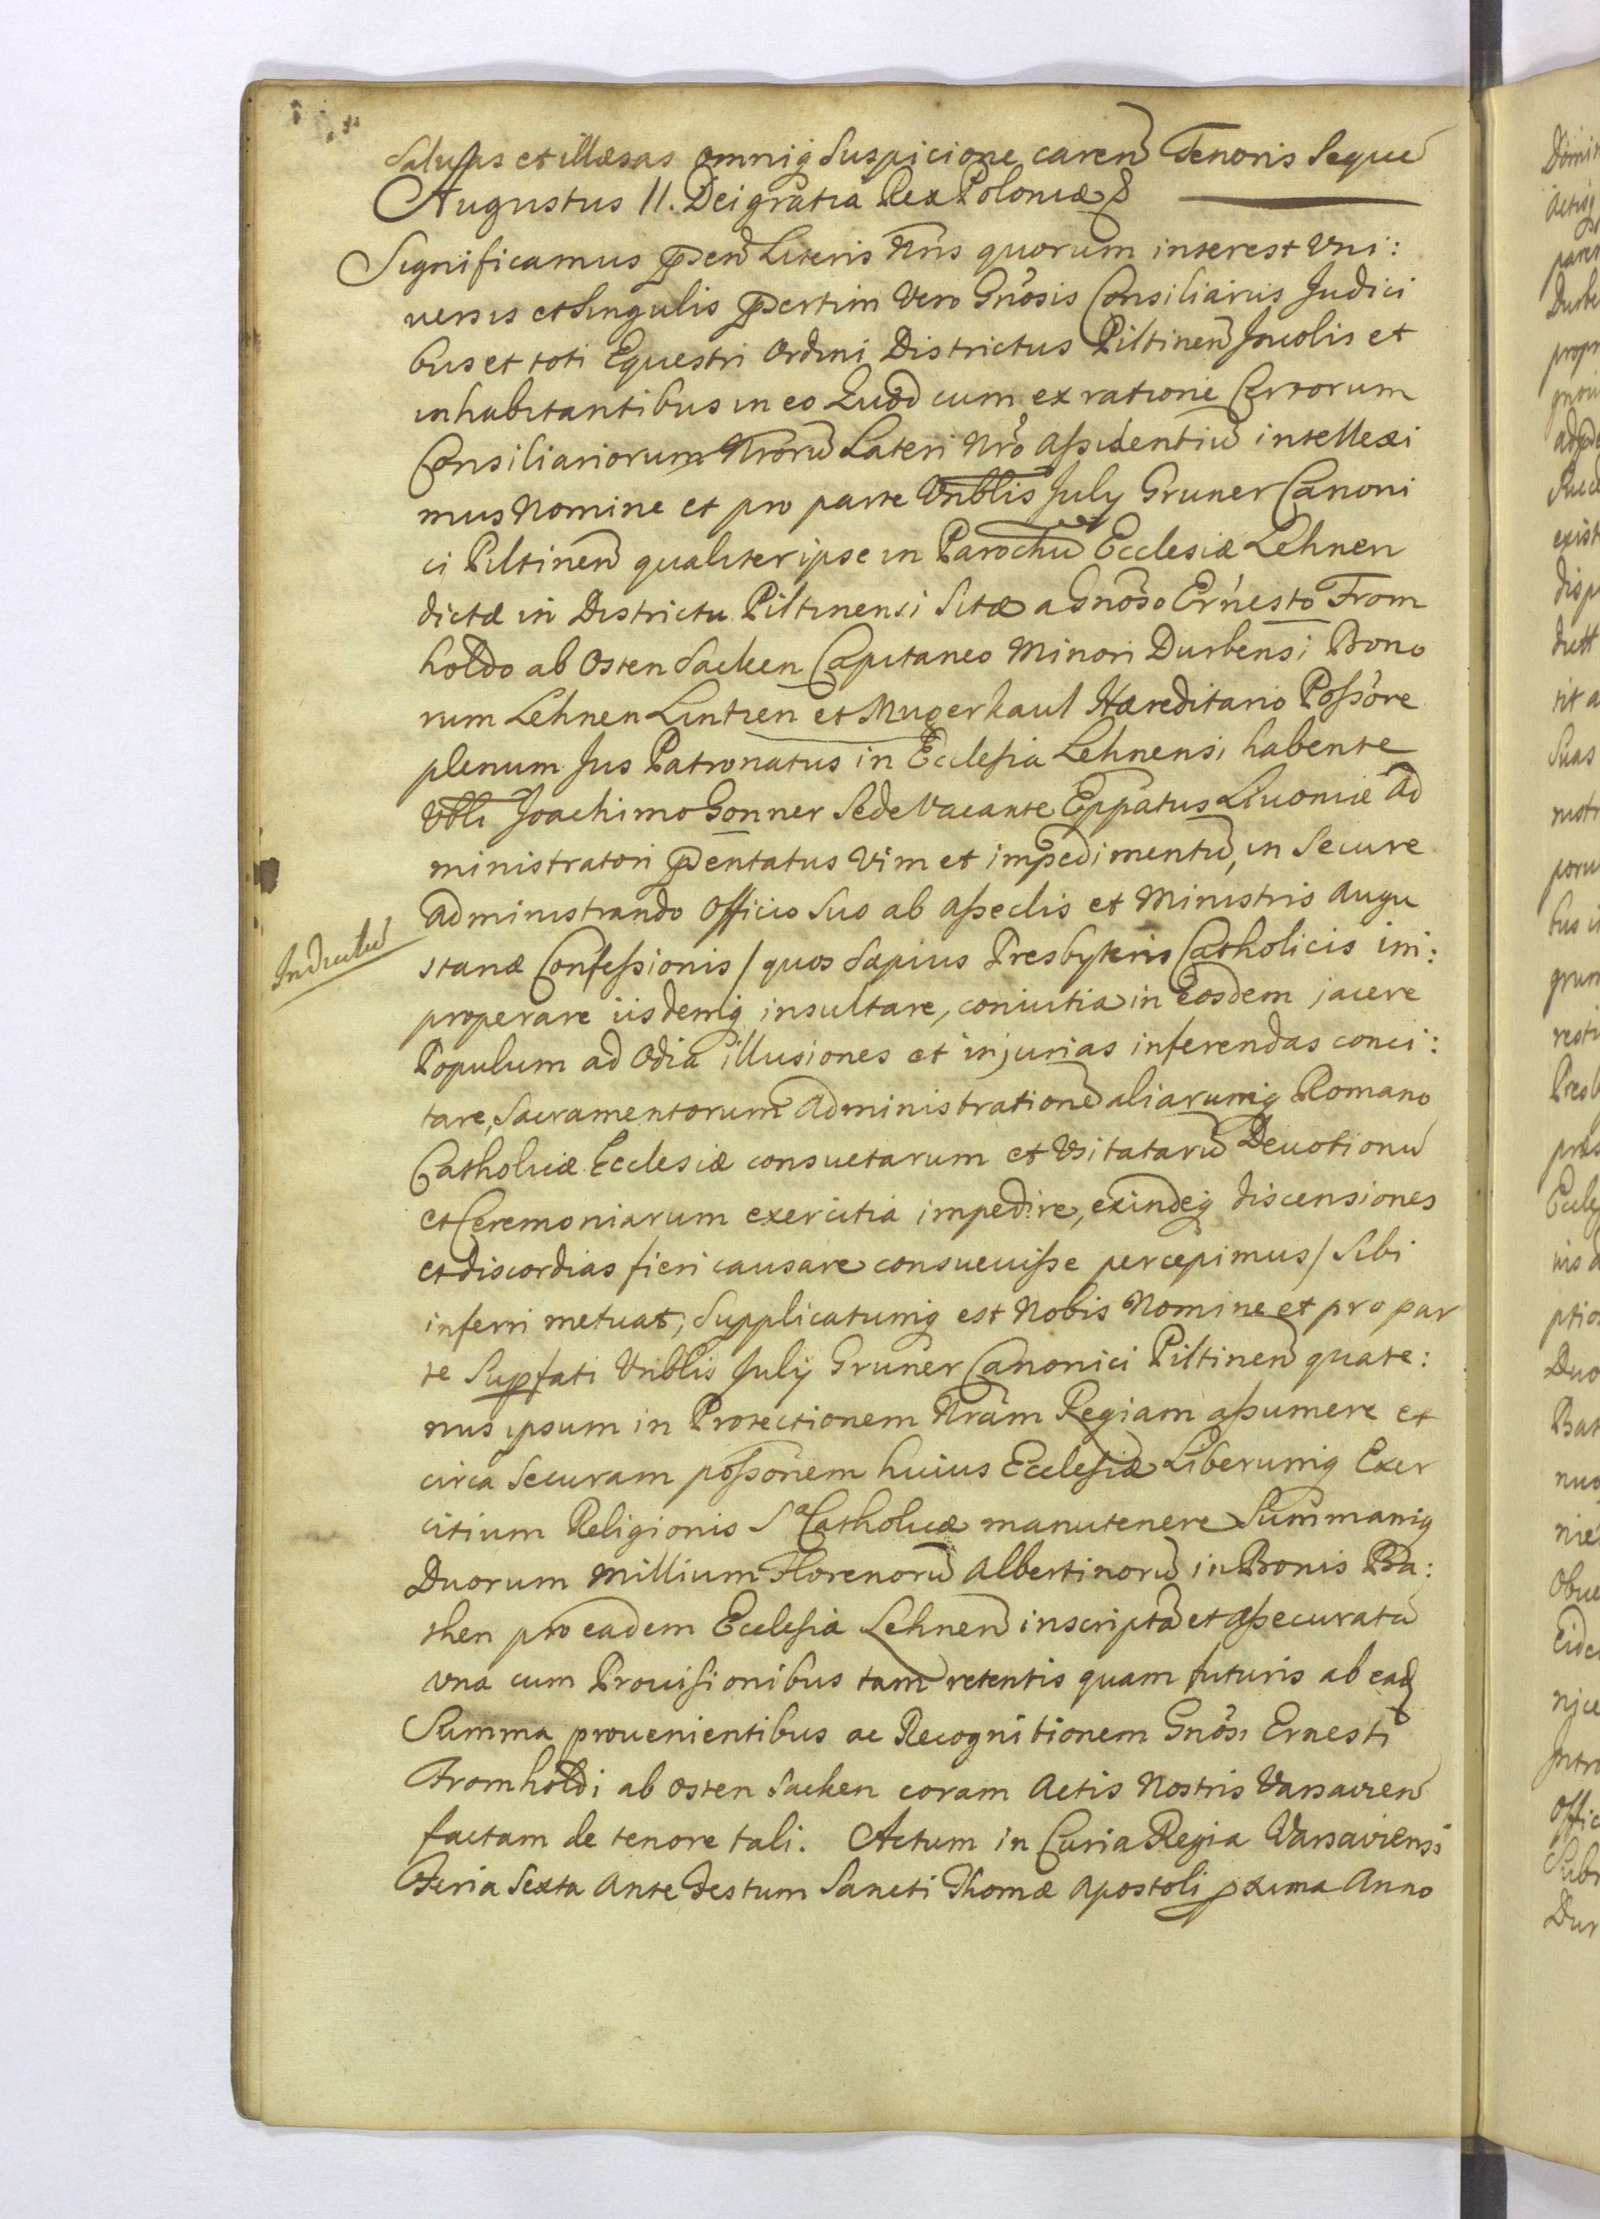 Saluas et illæsas omniq suspicione caren Tenoris Seque
Augustus II. Dei gratia Rex Poloniæ &
Significamus pnsen Literis Nris quorum interest Vni:
uersis et singulis psertim Vero Gnosis Consiliariis Judici
bus et toti Equestri Ordini Districtus Piltinen Incolis et
inhabitantibus in eo Quod cum ex ratione Certorum
Consiliariorum Nroru Lateri Nro Assidentiu intellexi
mus Nomine et pro parte Vnblis July Gruner Canoni
ci Piltinen qualiter ipse in Parochu Ecclesiæ Lehnen
dictæ in Districtu Piltinensi Sitæ a Gnoso Ernesto From
holdo ab Osten Sacken Capitaneo Minori Durbensi Bono
rum Lehnen Lintzen et Mugerkaul Hæreditario Possore
plenum Jus Patronatus in Ecclesia Lehnensi habente
Vbli Joachimo Gonner Sede Vacante Eppatus Livoniæ Ad
ministratori psentatus Vim et impedimentu, in Secure
Administrando Officio Suo ab asseclis et Ministris Augu
Indultu
stanæ Confessionis / quos Sæpius Presbyteris Catholicis im:
properare iisdemq insultare, conuitia in Eosdem jacere
Populum ad Odia illusiones et injurias inferendas conci:
tare, Sacramentorum Administratione aliarumq Romano
Catholicæ Ecclesiæ consuetarum et Vsitataru Deuotionu
et Ceremoniarum exercitia impedire, exindeq discensiones
et discordias fieri causare consueuisse percepimus / Sibi
inferri metuat, Supplicatumq est Nobis Nomine et pro par
te Supfati Vnblis July Gruner Canonici Piltinen quate:
nus ipsum in Protectionem Nram Regiam assumere et
circa Securam possonem huius Ecclesiæ Liberumq Exer
citium Religionis Sa Catholicæ manutenere Summamq
Duorum Millium Florenoru Albertinoru in Bonis Ba:
then pro eadem Ecclesia Lehnen inscripta et assecurata
vna cum Prouisionibus tam retentis quam futuris ab ead
Summa prouenientibus ac Recognitionem Gnosi Ernesti
Fromholdi ab Osten Sacken coram Actis Nostris Varsavien
factam de tenore tali. Actum in Curia Regia Varsaviensi
Feria Sexta Ante Festum Sancti Thomæ Apostoli pxima Anno